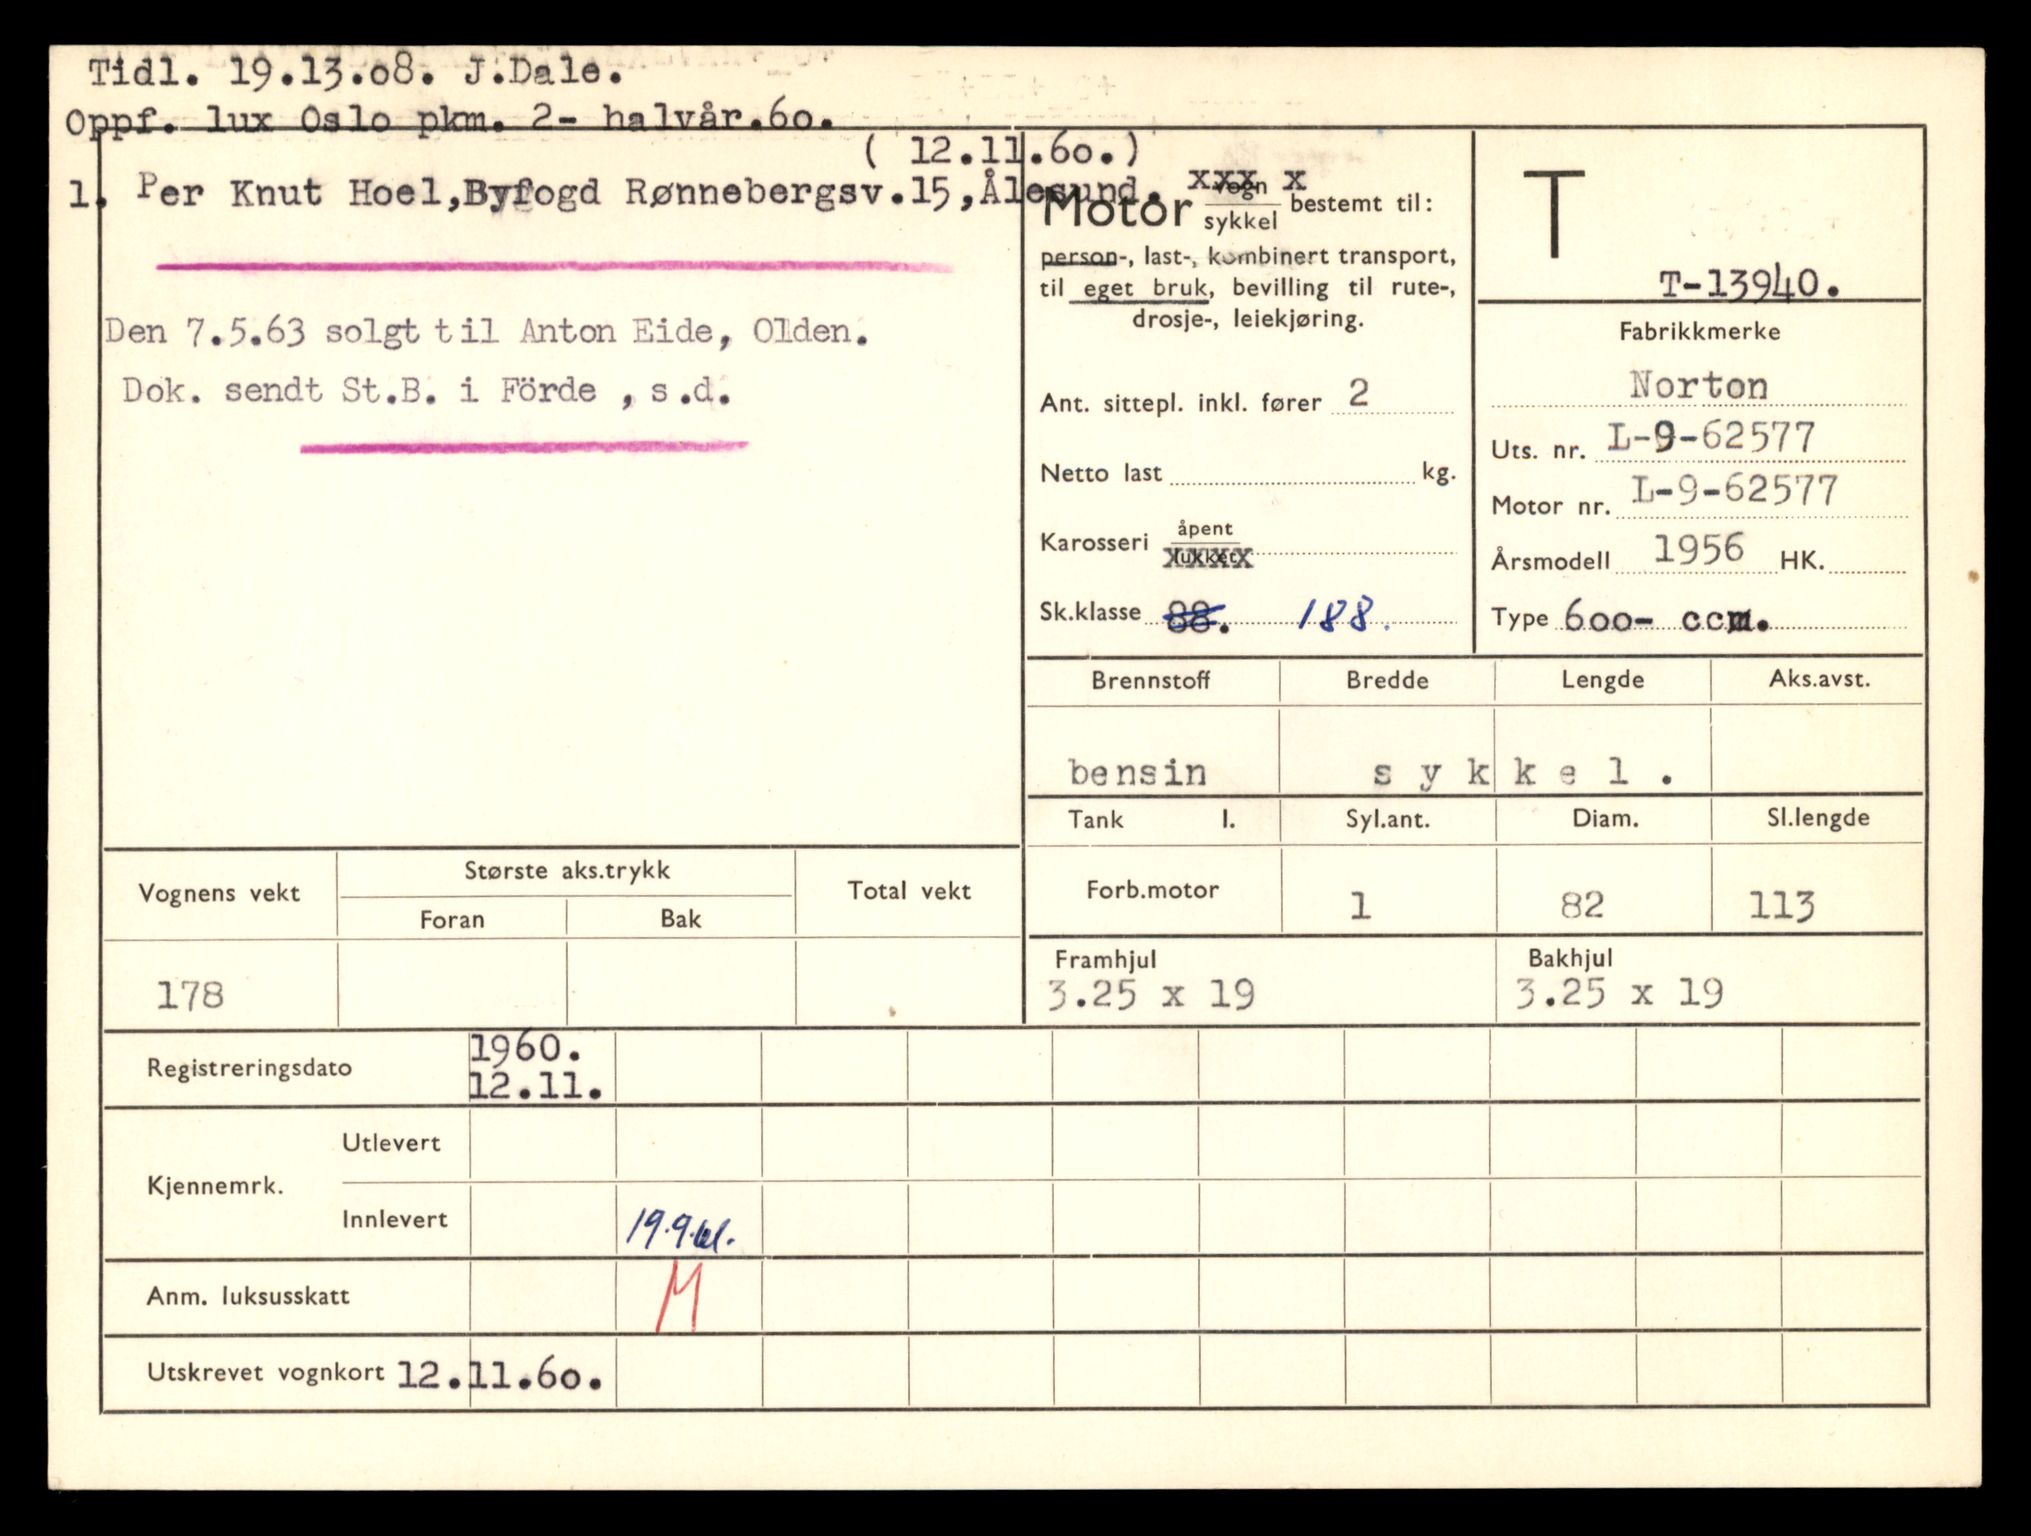 Tidl. 19.13.o8. J.Dale.
Oppf. lux Oslo pkm. 2- halvår.6o.
( 12.11.6o.)
1. Per Knut Hoel,Byfogd Rønnebergsv.15,Ålesund.
Den 7.5.63 solgt til Anton Eide, Olden.
Dok. sendt St.B. i Förde , s.d.
Motor vogn
sykkel bestemt til:
person-, last-, kombinert transport,
til eget bruk, bevilling til rute-,
drosje-, leiekjøring.
Ant. sittepl. inkl. fører 2
Netto last kg.
Karosseri åpent
lukket
Sk.klasse 88. 188.
T
T-13940.
Fabrikkmerke
Norton
Uts. nr. L-9-62577
Motor nr. L-9-62577
Årsmodell 1956 HK.
Type 6oo- ccm.
Brennstoff Bredde Lengde Aks.avst.
bensin s y k k e l .
Tank l. Syl.ant. Diam. Sl.lengde
Forb.motor 1 82 113
Framhjul Bakhjul
3.25 x 19 3.25 x 19
Vognens vekt Største aks.trykk Total vekt
Foran Bak
178
Registreringsdato 1960.
12.11.
Kjennemrk. Utlevert
Innlevert 19.9.61.
Anm. luksusskatt M
Utskrevet vognkort 12.11.6o.